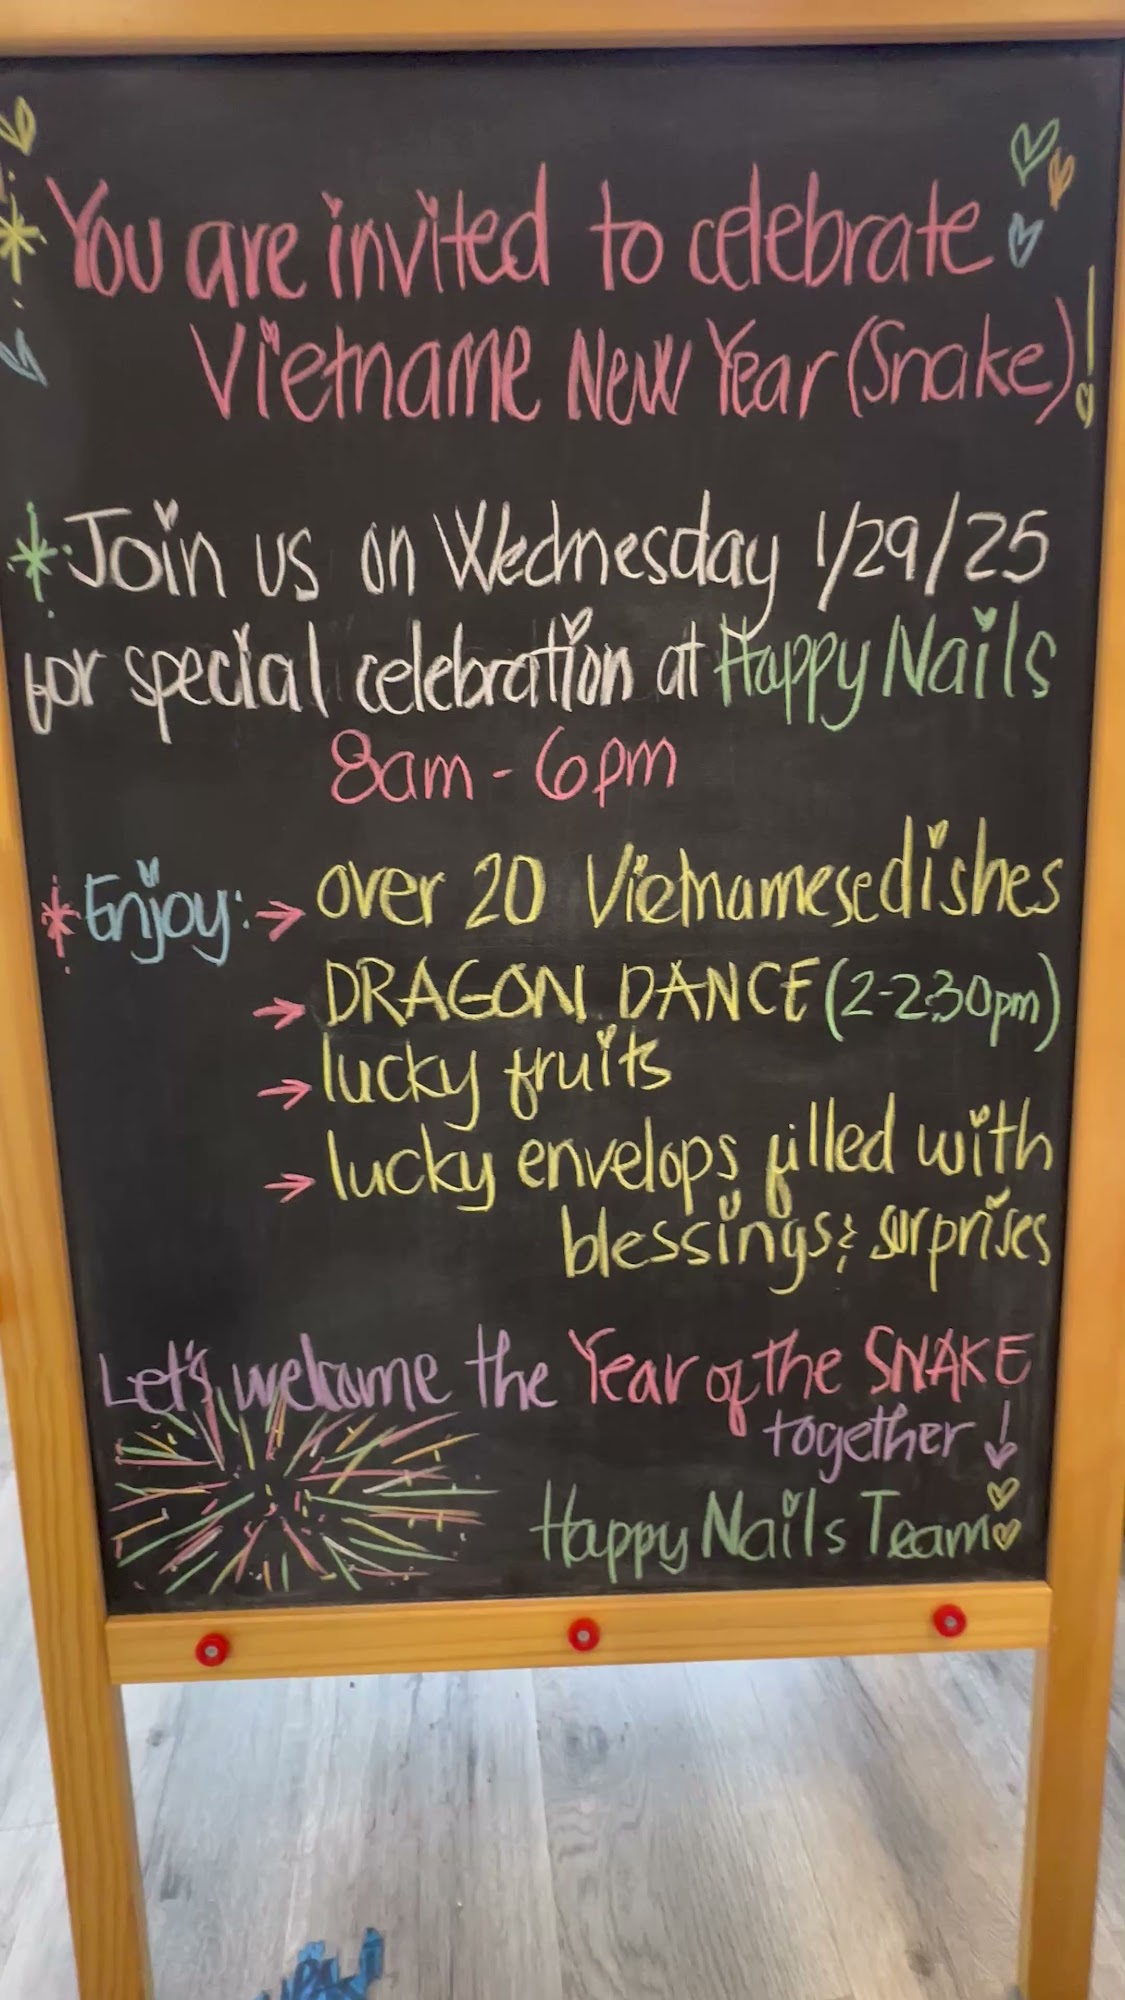 You are invited to celebrate
Vietname New Year (Snake)!
Join us on Wednesday 1/29/25
for special celebration at Happy Nails
8am - 6pm
Enjoy: → over 20 Vietnamese dishes
→ DRAGON DANCE (2-2:30pm)
→ lucky fruits
→ lucky envelops filled with
blessings & surprises
Let's welcome the Year of the SNAKE
together
Happy Nails Team